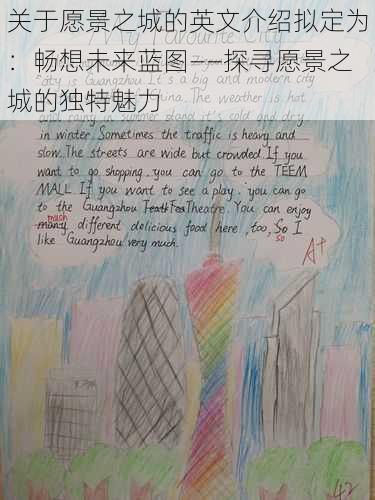 关于愿景之城的英文介绍拟定为
：畅想未来蓝图——探寻愿景之
城的独特魅力
My Favourite City
city is Guangzhou. It's a big and modern city
China. The weather is hot
and rainy in summer and it's cold and dry
in winter. Sometimes the traffic is heavy and
slow. The streets are wide but crowded. If you
want to go shopping, you can go to the TEEM
MALL. If you want to see a play, you can go
to the Guangzhou Theatre. You can enjoy
mush
many different delicious food here, too, So I
so
like Guangzhou very much.
A+
42